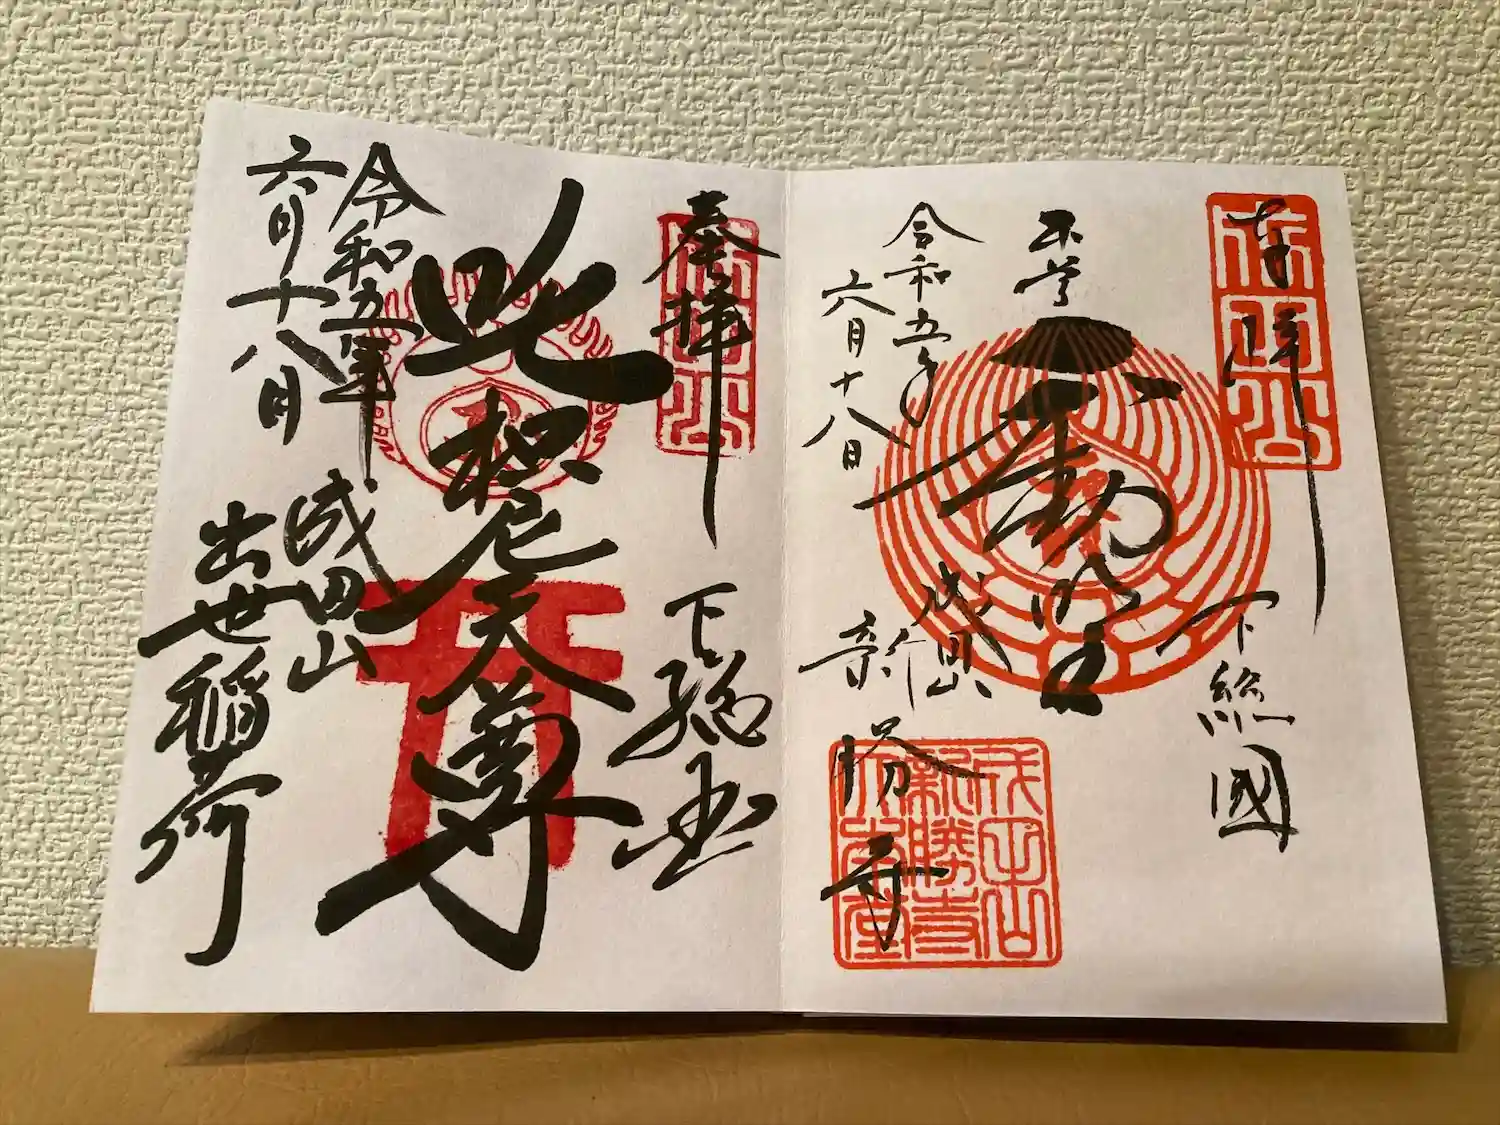 奉拝
成田山
下総國
本尊
不動明王
令和五年
六月十八日
成田山
新勝寺
成田山
新勝寺
大本堂
奉拝
成田山
下総国
枳尼天尊
令和五年
六月十八日
成田山
出世稲荷